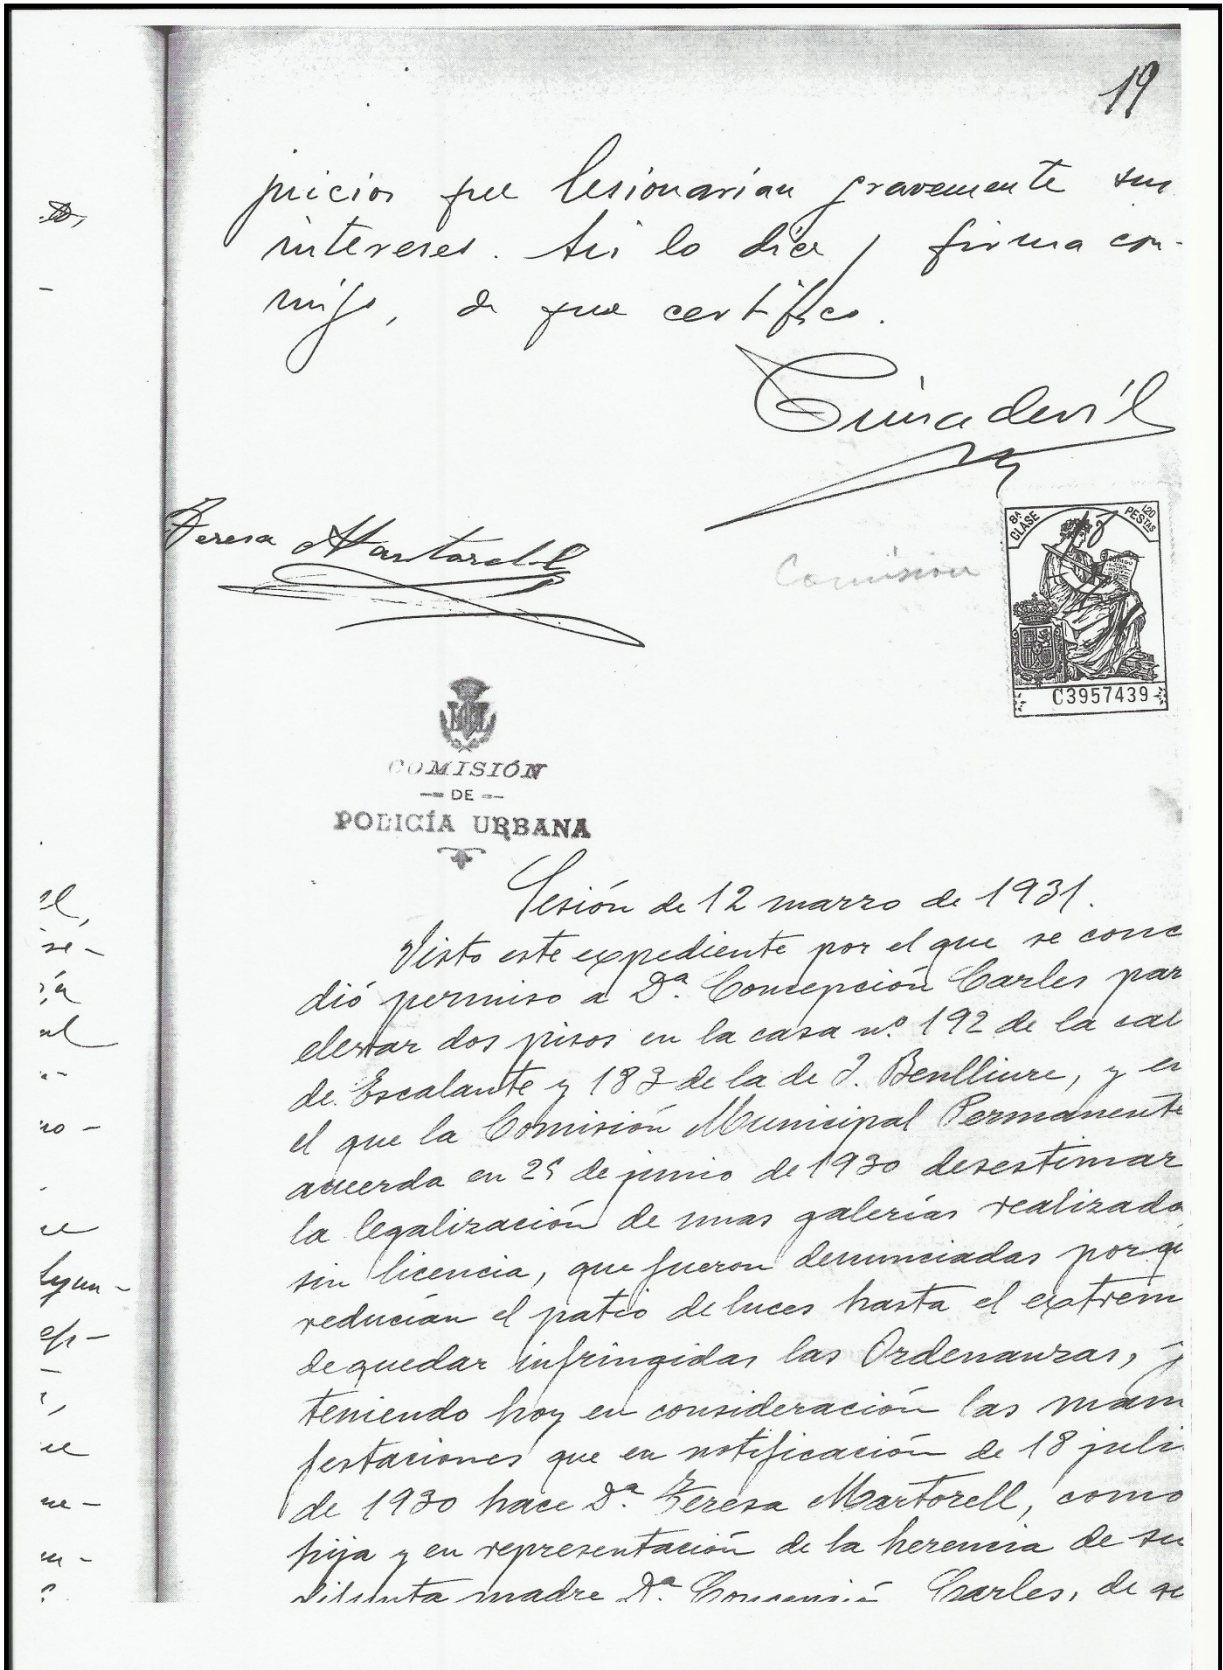 19
juicios que lesionarían gravemente sus
intereses. Así lo dice y firma con-
migo, de que certifico.
Teresa Martorell
Comisión
8ª CLASE
1'20 PESETAS
C3957439
COMISIÓN
DE
POLICÍA URBANA
Sesión de 12 marzo de 1931.
Visto este expediente por el que se conc
dió permiso a Dª. Concepción Carles par
elevar dos pisos en la casa nº 192 de la cal
de Escalante y 183 de la de J. Benlliure, y en
el que la Comisión Municipal Permanente
acuerda en 25 de junio de 1930 desestimar
la legalización de unas galerías realizada
sin licencia, que fueron denunciadas por q
reducían el patio de luces hasta el extrem
de quedar infringidas las Ordenanzas, y
teniendo hoy en consideración las mani
festaciones que en notificación de 18 juli
de 1930 hace Dª. Teresa Martorell, como
hija y en representación de la herencia de su
difunta madre Dª. Concepción Carles, de